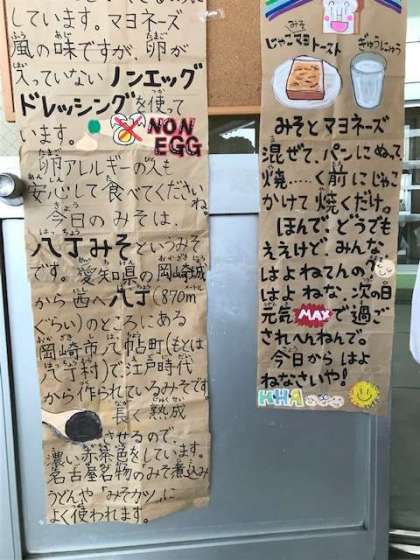 しています。マヨネーズ
風の味ですが、卵が
入っていないノンエッグ
ドレッシングを使って
います。
NON
EGG
卵アレルギーの人も
安心して食べてくださいね。
今日のみそは、
八丁みそというみそ
です。愛知県の岡崎城
から西へ八丁(870m
ぐらい)のところにある
岡崎市八帖町(もとは
八丁村)で江戸時代
から作られているみそです。
長く熟成
させるので、
濃い赤茶色をしています。
名古屋名物のみそ煮込み
うどんや「みそカツ」に
よく使われます。
みそ
じゃこマヨトースト
ぎゅうにゅう
みそとマヨネーズ
混ぜて、パンにぬって
焼……く前にじゃこ
かけて焼くだけ。
ほんで、どうでも
ええけどみんな、
はよねてんの？
はよねな、次の日
元気MAXで過ご
されへんねんで。
今日からはよ
ねなさいや!